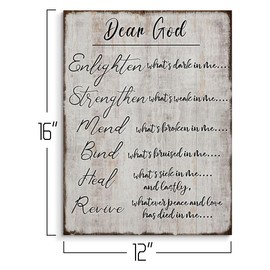 Dear God
Enlighten what's dark in me....
Strengthen what's weak in me....
Mend what's broken in me....
Bind what's bruised in me....
Heal what's sick in me....
and lastly,
Revive whatever peace and love
has died in me....
16"
12"